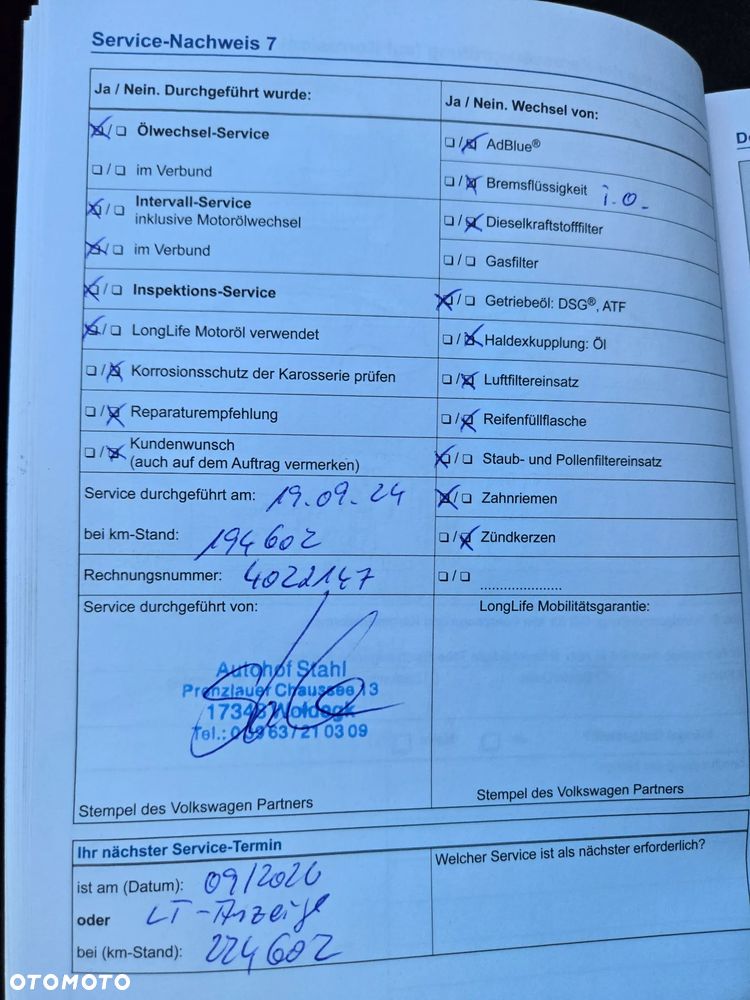 Service-Nachweis 7
Ja / Nein. Durchgeführt wurde:
Ölwechsel-Service
im Verbund
Intervall-Service
inklusive Motorölwechsel
im Verbund
Inspektions-Service
LongLife Motoröl verwendet
Korrosionsschutz der Karosserie prüfen
Reparaturempfehlung
Kundenwunsch
(auch auf dem Auftrag vermerken)
Service durchgeführt am: 19.09.24
bei km-Stand: 194602
Rechnungsnummer: 4022147
Service durchgeführt von:
Autohof Stahl
Prenzlauer Chaussee 13
17348 Woldegk
Tel.: 0 39 63/21 03 09
Stempel des Volkswagen Partners
Ja / Nein. Wechsel von:
AdBlue®
Bremsflüssigkeit i.O.
Dieselkraftstofffilter
Gasfilter
Getriebeöl: DSG®, ATF
Haldexkupplung: Öl
Luftfiltereinsatz
Reifenfüllflasche
Staub- und Pollenfiltereinsatz
Zahnriemen
Zündkerzen
LongLife Mobilitätsgarantie:
Stempel des Volkswagen Partners
Ihr nächster Service-Termin
ist am (Datum): 09/2026
oder LT-Anzeige
bei (km-Stand): 224602
Welcher Service ist als nächster erforderlich?
OTOMOTO